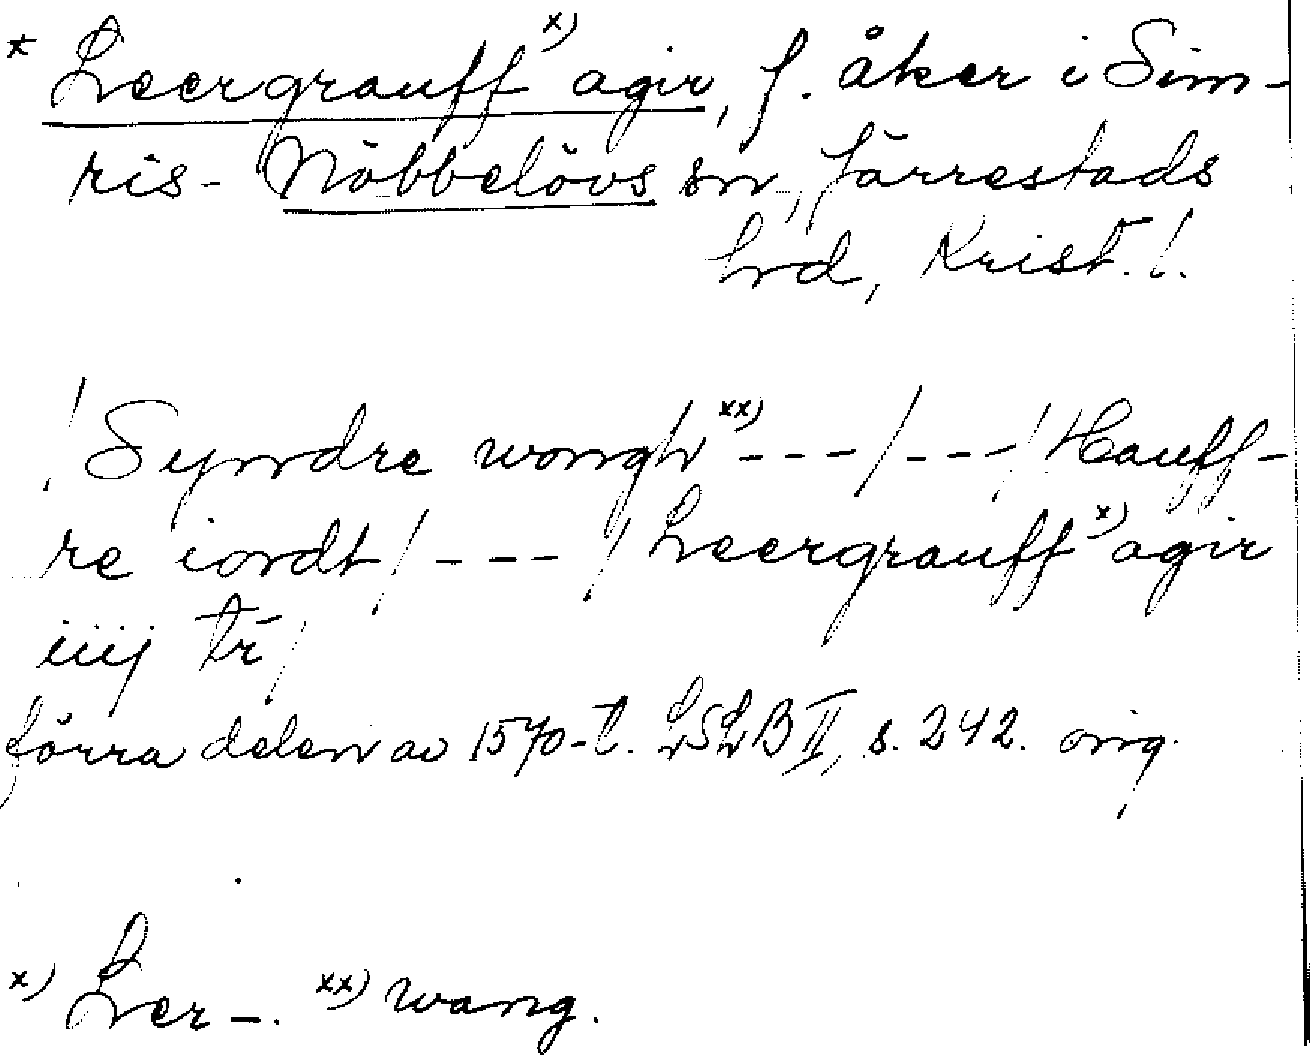 * Leergrauff x) agir, f. åker i Sim-
ris- Nöbbelövs sn, Järrestads
hrd, Krist. l.
/ Syndre wongh xx) --- / --- / Hauff-
re iordt / --- / Leergrauff x) agir
iiij tr /
förra delen av 1570-t. LSLB II, s. 242. orig.
x) Ler-. xx) wang.